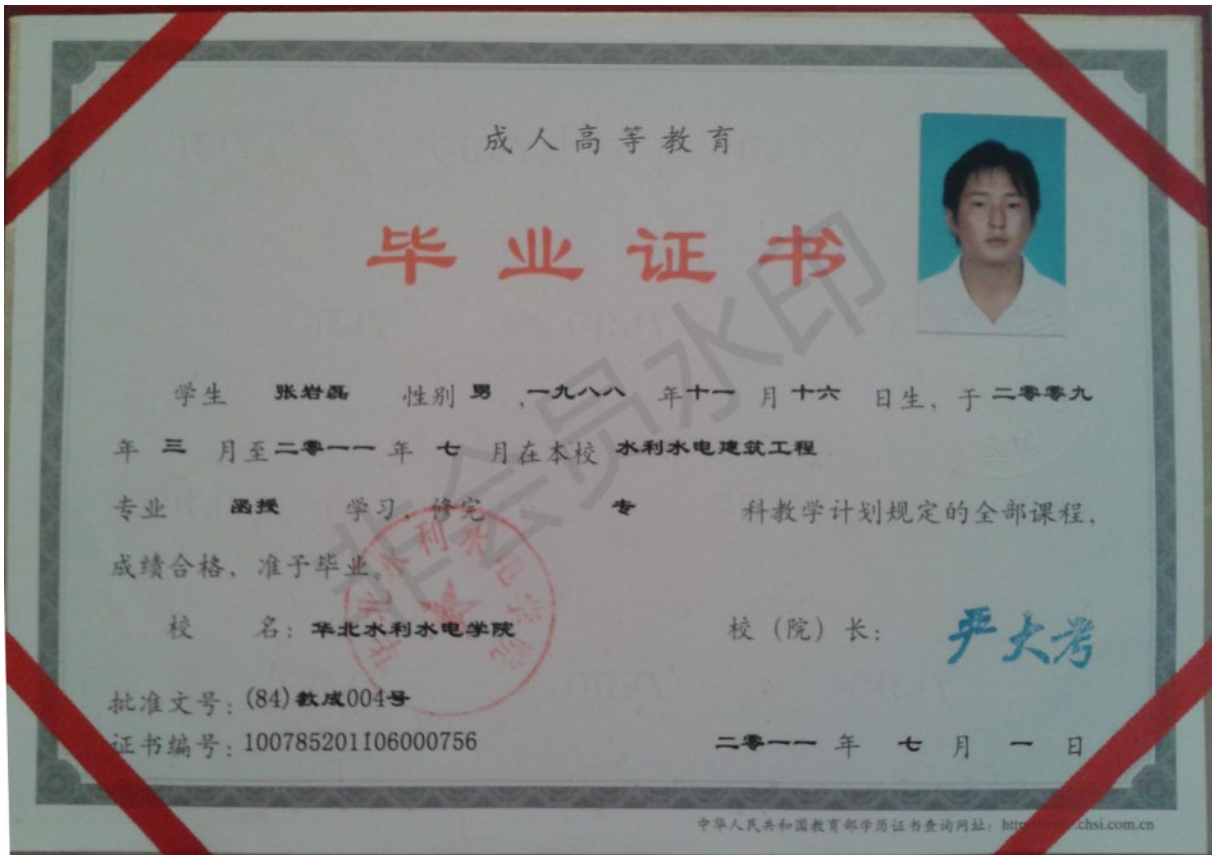 成人高等教育
毕业证书
学生 张岩磊 性别 男 ,一九八八 年十一 月 十六 日生，于 二零零九
年 三 月至二零一一 年 七 月在本校 水利水电建筑工程
专业 函授 学习，修完 专 科教学计划规定的全部课程，
成绩合格，准予毕业。
华北水利水电学院
校 名：华北水利水电学院 校（院）长： 严大考
批准文号：(84)教成004号
证书编号：100785201106000756 二零一一 年 七 月 一 日
中华人民共和国教育部学历证书查询网址： chsi.com.cn
非会员水印